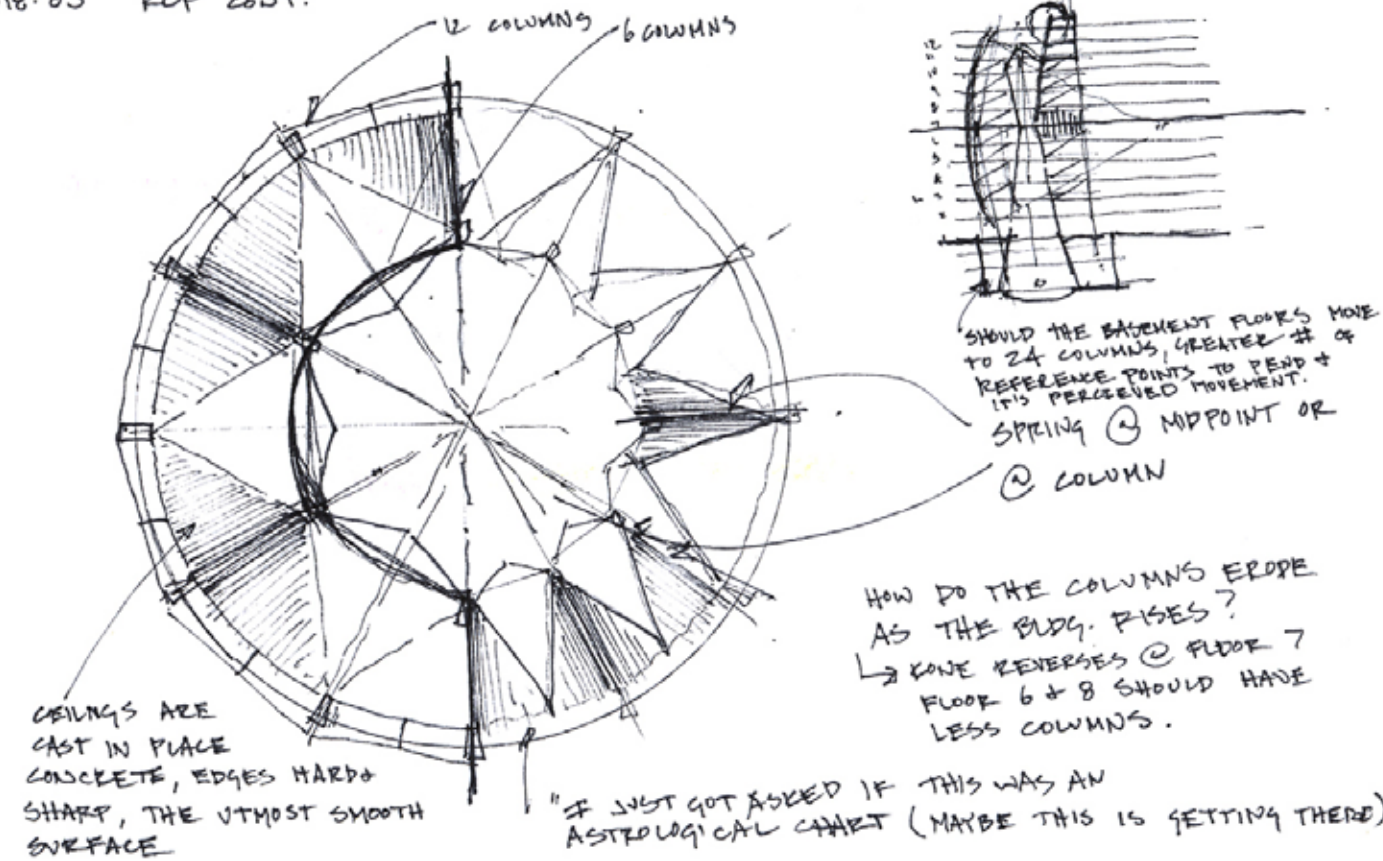 RCP CONT.
12 COLUMNS
6 COLUMNS
SHOULD THE BASEMENT FLOORS MOVE
TO 24 COLUMNS, GREATER # OF
REFERENCE POINTS TO PEND &
IT'S PERCEIVED MOVEMENT.
SPRING @ MIDPOINT OR
@ COLUMN
HOW DO THE COLUMNS ERODE
AS THE BLDG. RISES?
↳ KONE REVERSES @ FLOOR 7
FLOOR 6 & 8 SHOULD HAVE
LESS COLUMNS.
CEILINGS ARE
CAST IN PLACE
CONCRETE, EDGES HARD &
SHARP, THE UTMOST SMOOTH
SURFACE
"I JUST GOT ASKED IF THIS WAS AN
ASTROLOGICAL CHART (MAYBE THIS IS GETTING THERE)